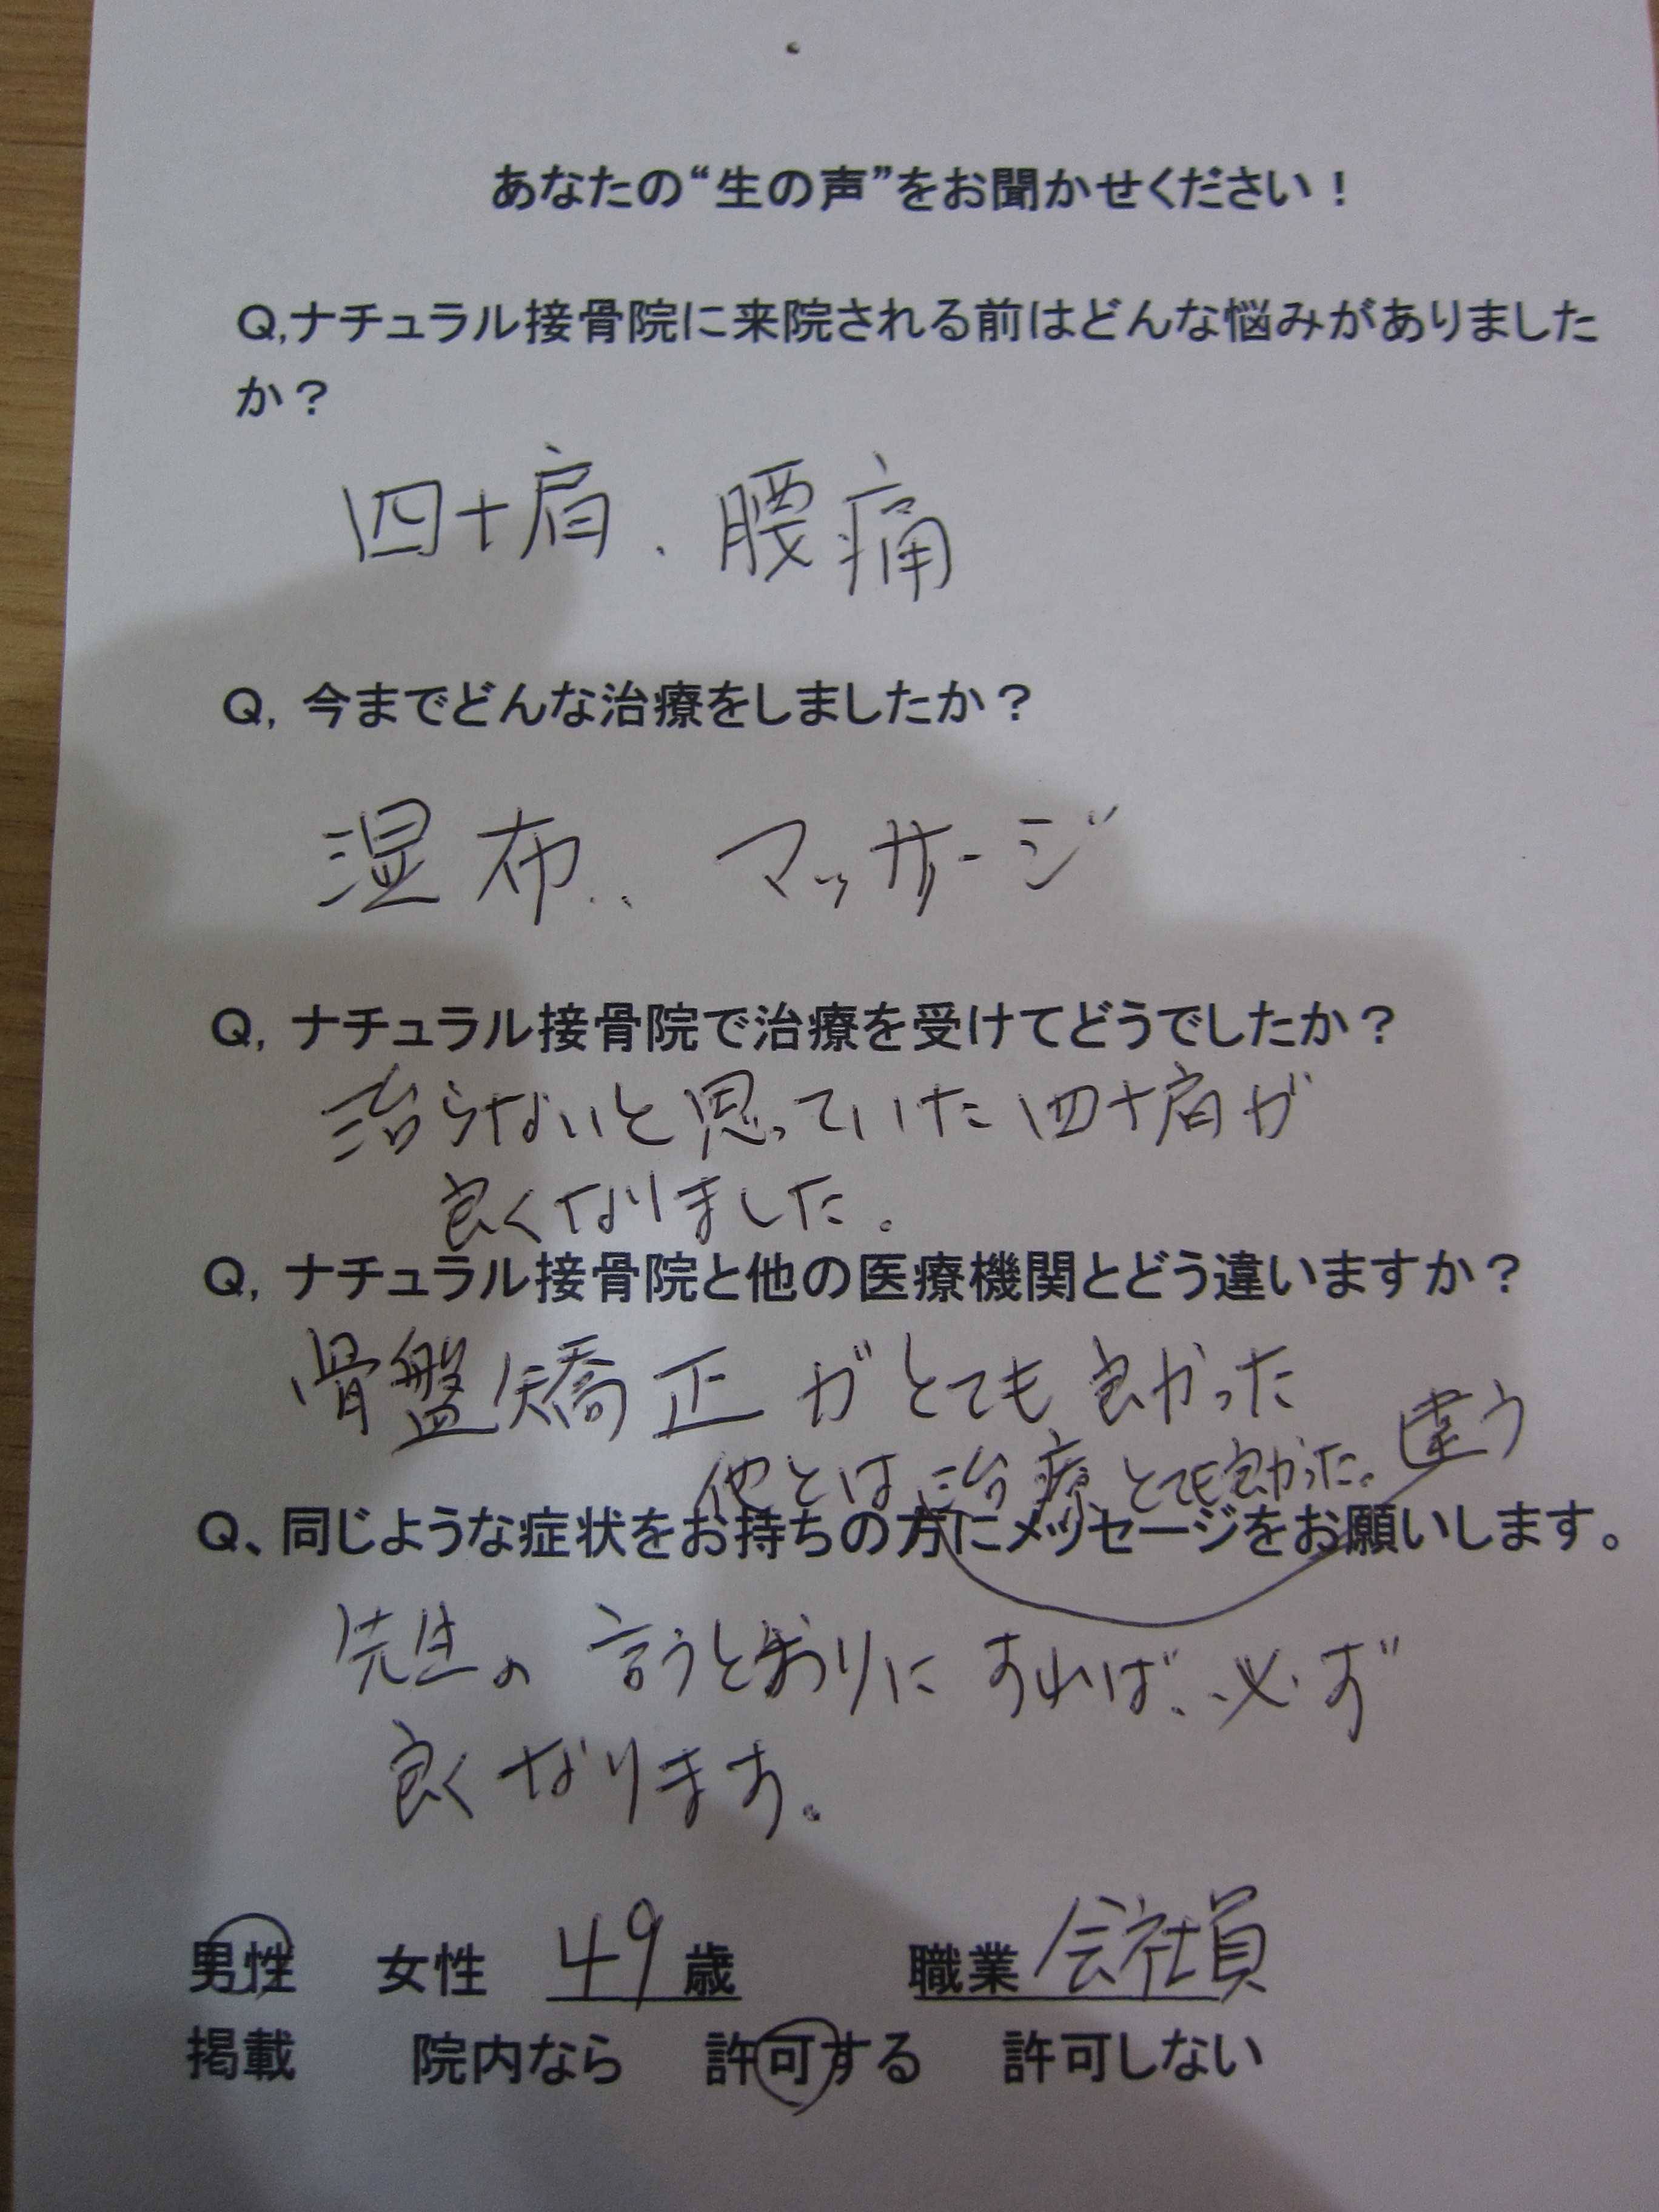 あなたの“生の声”をお聞かせください！
Q,ナチュラル接骨院に来院される前はどんな悩みがありました
か？
四十肩、腰痛
Q, 今までどんな治療をしましたか？
湿布、マッサージ
Q, ナチュラル接骨院で治療を受けてどうでしたか？
治らないと思っていた四十肩が
良くなりました。
Q, ナチュラル接骨院と他の医療機関とどう違いますか？
骨盤矯正がとても良かった
他とは治療とても良かった。違う
Q、同じような症状をお持ちの方にメッセージをお願いします。
先生の言うとおりにすれば、必ず
良くなります。
男性 女性 49歳 職業 会社員
掲載 院内なら 許可する 許可しない